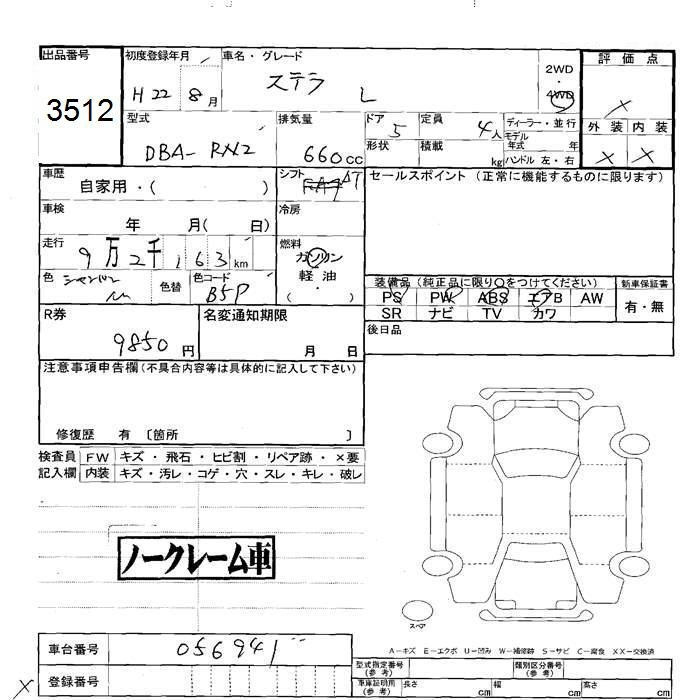 出品番号 初度登録年月 車名・グレード 評価点
3512 H22 8月 ステラ L 2WD 4WD
外装 内装
× ×
型式 排気量 ドア 定員 ディーラー・並行
DBA-RN2 660cc 5 4人 モデル年式 年
形状 積載 kg ハンドル 左・右
車歴 シフト セールスポイント (正常に機能するものに限ります)
自家用・( ) AT
車検 年 月( 日) 冷房
走行 9万2千163km 燃料 ガソリン
軽油・( )
色 シャンパン M 色替 色コード B5P
装備品 (純正品に限り○をつけてください) 新車保証書
PS PW ABS エアB AW 有・無
SR ナビ TV カワ
R券 名変通知期限 後日品
9850円 月 日
注意事項申告欄 (不具合内容等は具体的に記入して下さい)
修復歴 有 〔箇所 〕
検査員 FW キズ・飛石・ヒビ割・リペア跡・×要
記入欄 内装 キズ・汚レ・コゲ・穴・スレ・キレ・破レ
ノークレーム車
スペア
A-キズ E-エクボ U-凹み W-補修跡 S-サビ C-腐食 XX-交換済
車台番号 056941
型式指定番号 (参考) 類別区分番号 (参考)
× 登録番号
車庫証明用 (参考) 長さ cm 幅 cm 高さ cm